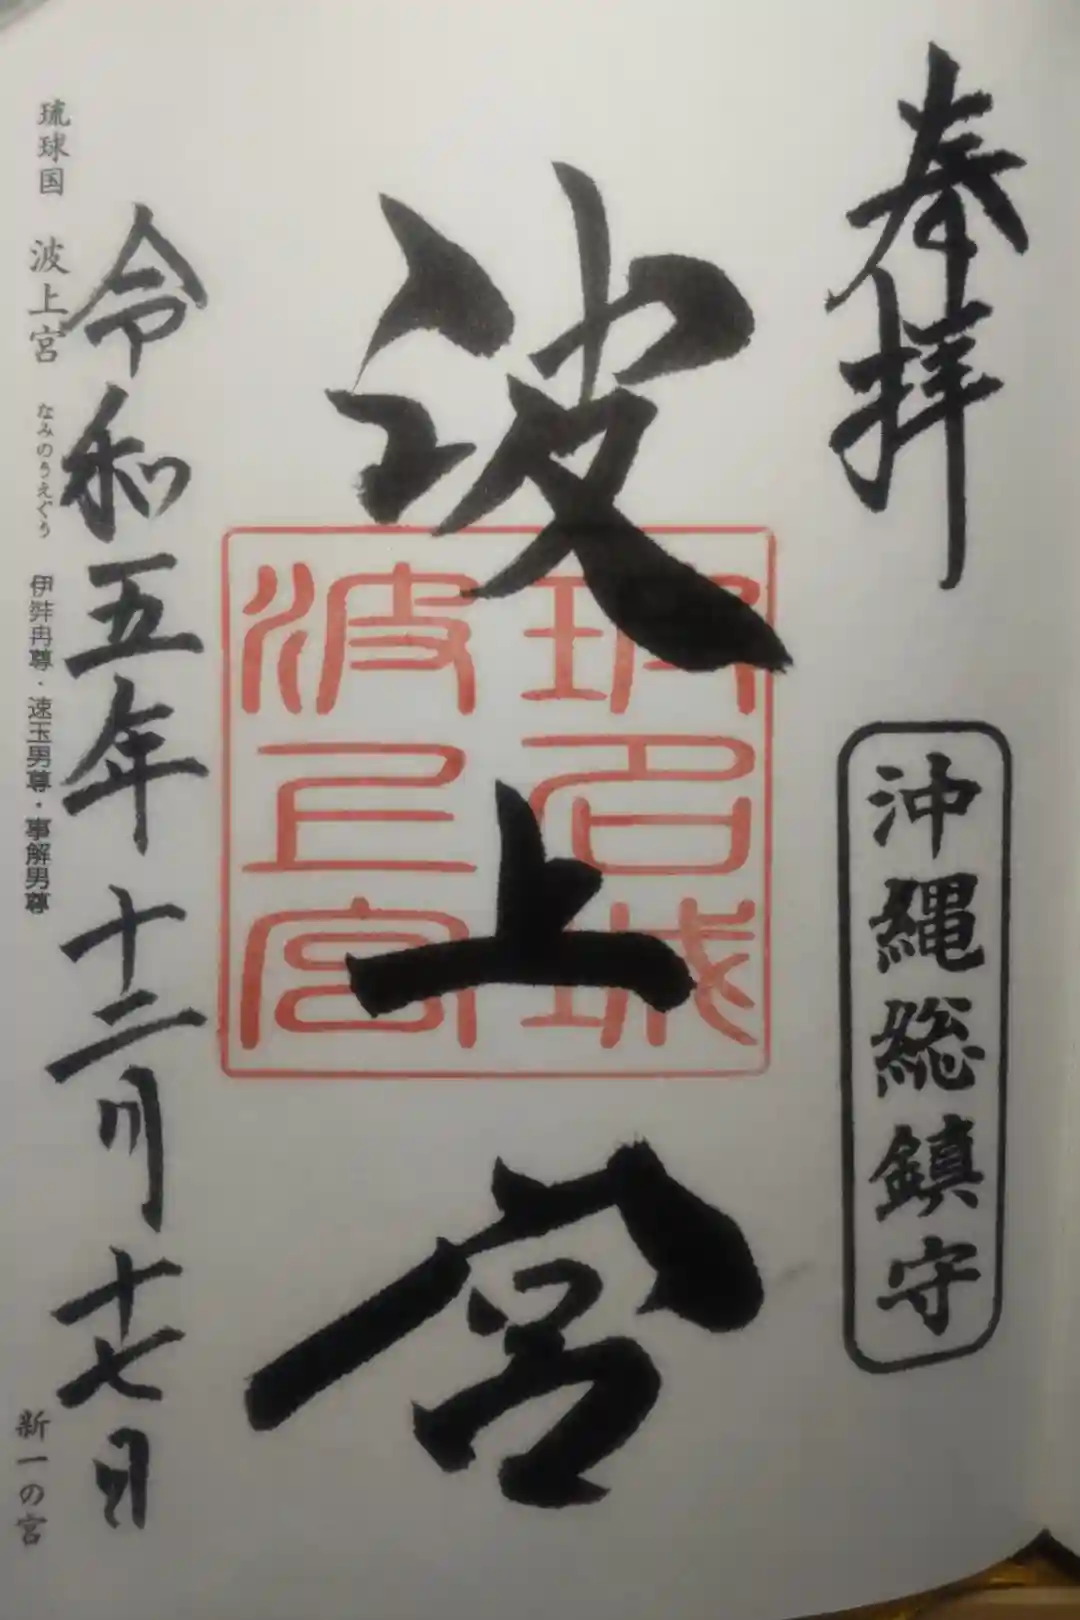 奉拝
沖縄総鎮守
波上宮
波上宮
令和五年十二月十七日
琉球国 波上宮 なみのうえぐう 伊弉冉尊・速玉男尊・事解男尊 新一の宮